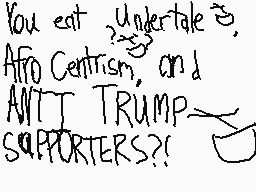 You eat Undertale,
Afro Centrism, and
ANTI TRUMP
SUPPORTERS?!